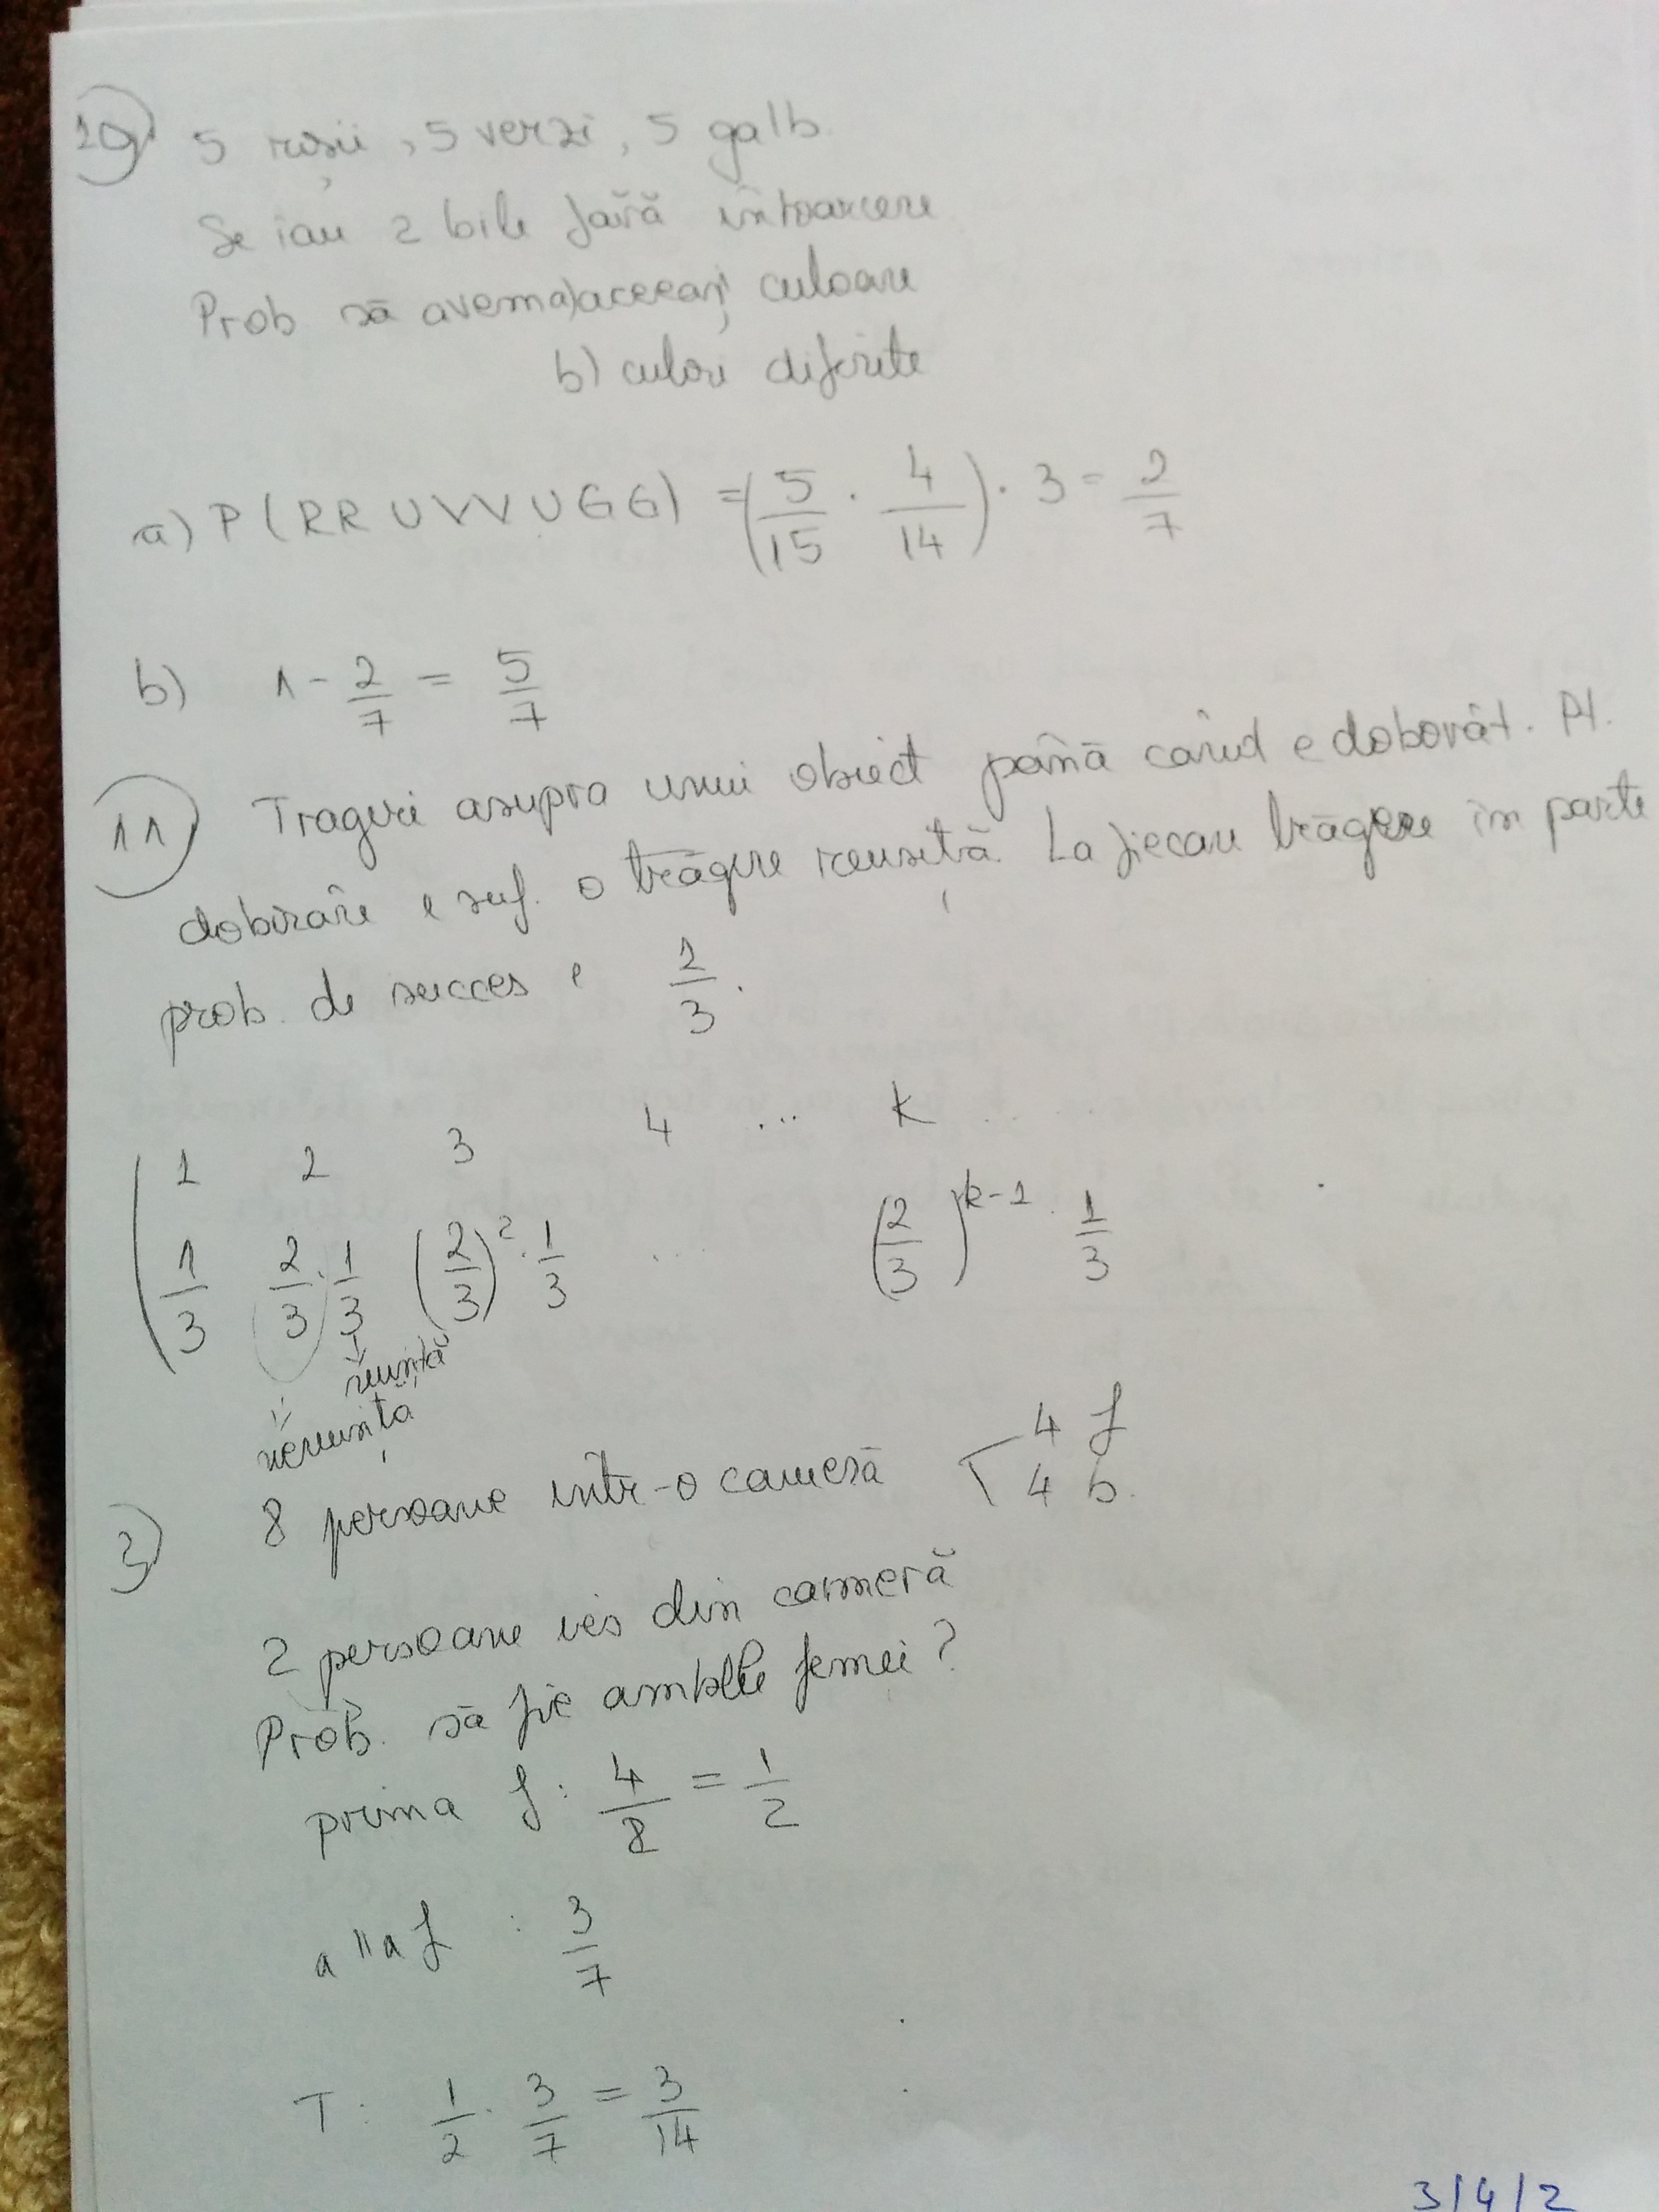 10) 5 roșii, 5 verzi, 5 galb.
Se iau 2 bile fără întoarcere
Prob să avem a) aceeași culoare
b) culori diferite
a) P(RR ∪ VV ∪ GG) = (5/15 · 4/14) · 3 = 2/7
b) 1 - 2/7 = 5/7
11) Trageri asupra unui obiect până când e doborât. Pt.
doborâre e suf. o trăgere reușită. La fiecare trăgere în parte
prob. de succes e 1/3.
1 2 3 4 ... k ...
1/3 2/3 · 1/3 (2/3)^2 · 1/3 ... (2/3)^k-1 · 1/3
reușită
nereușită
3) 8 persoane într-o cameră 4 f
4 b.
2 persoane ies din cameră
Prob. să fie ambele femei?
prima f: 4/8 = 1/2
a II a f : 3/7
T: 1/2 · 3/7 = 3/14
3/4/2